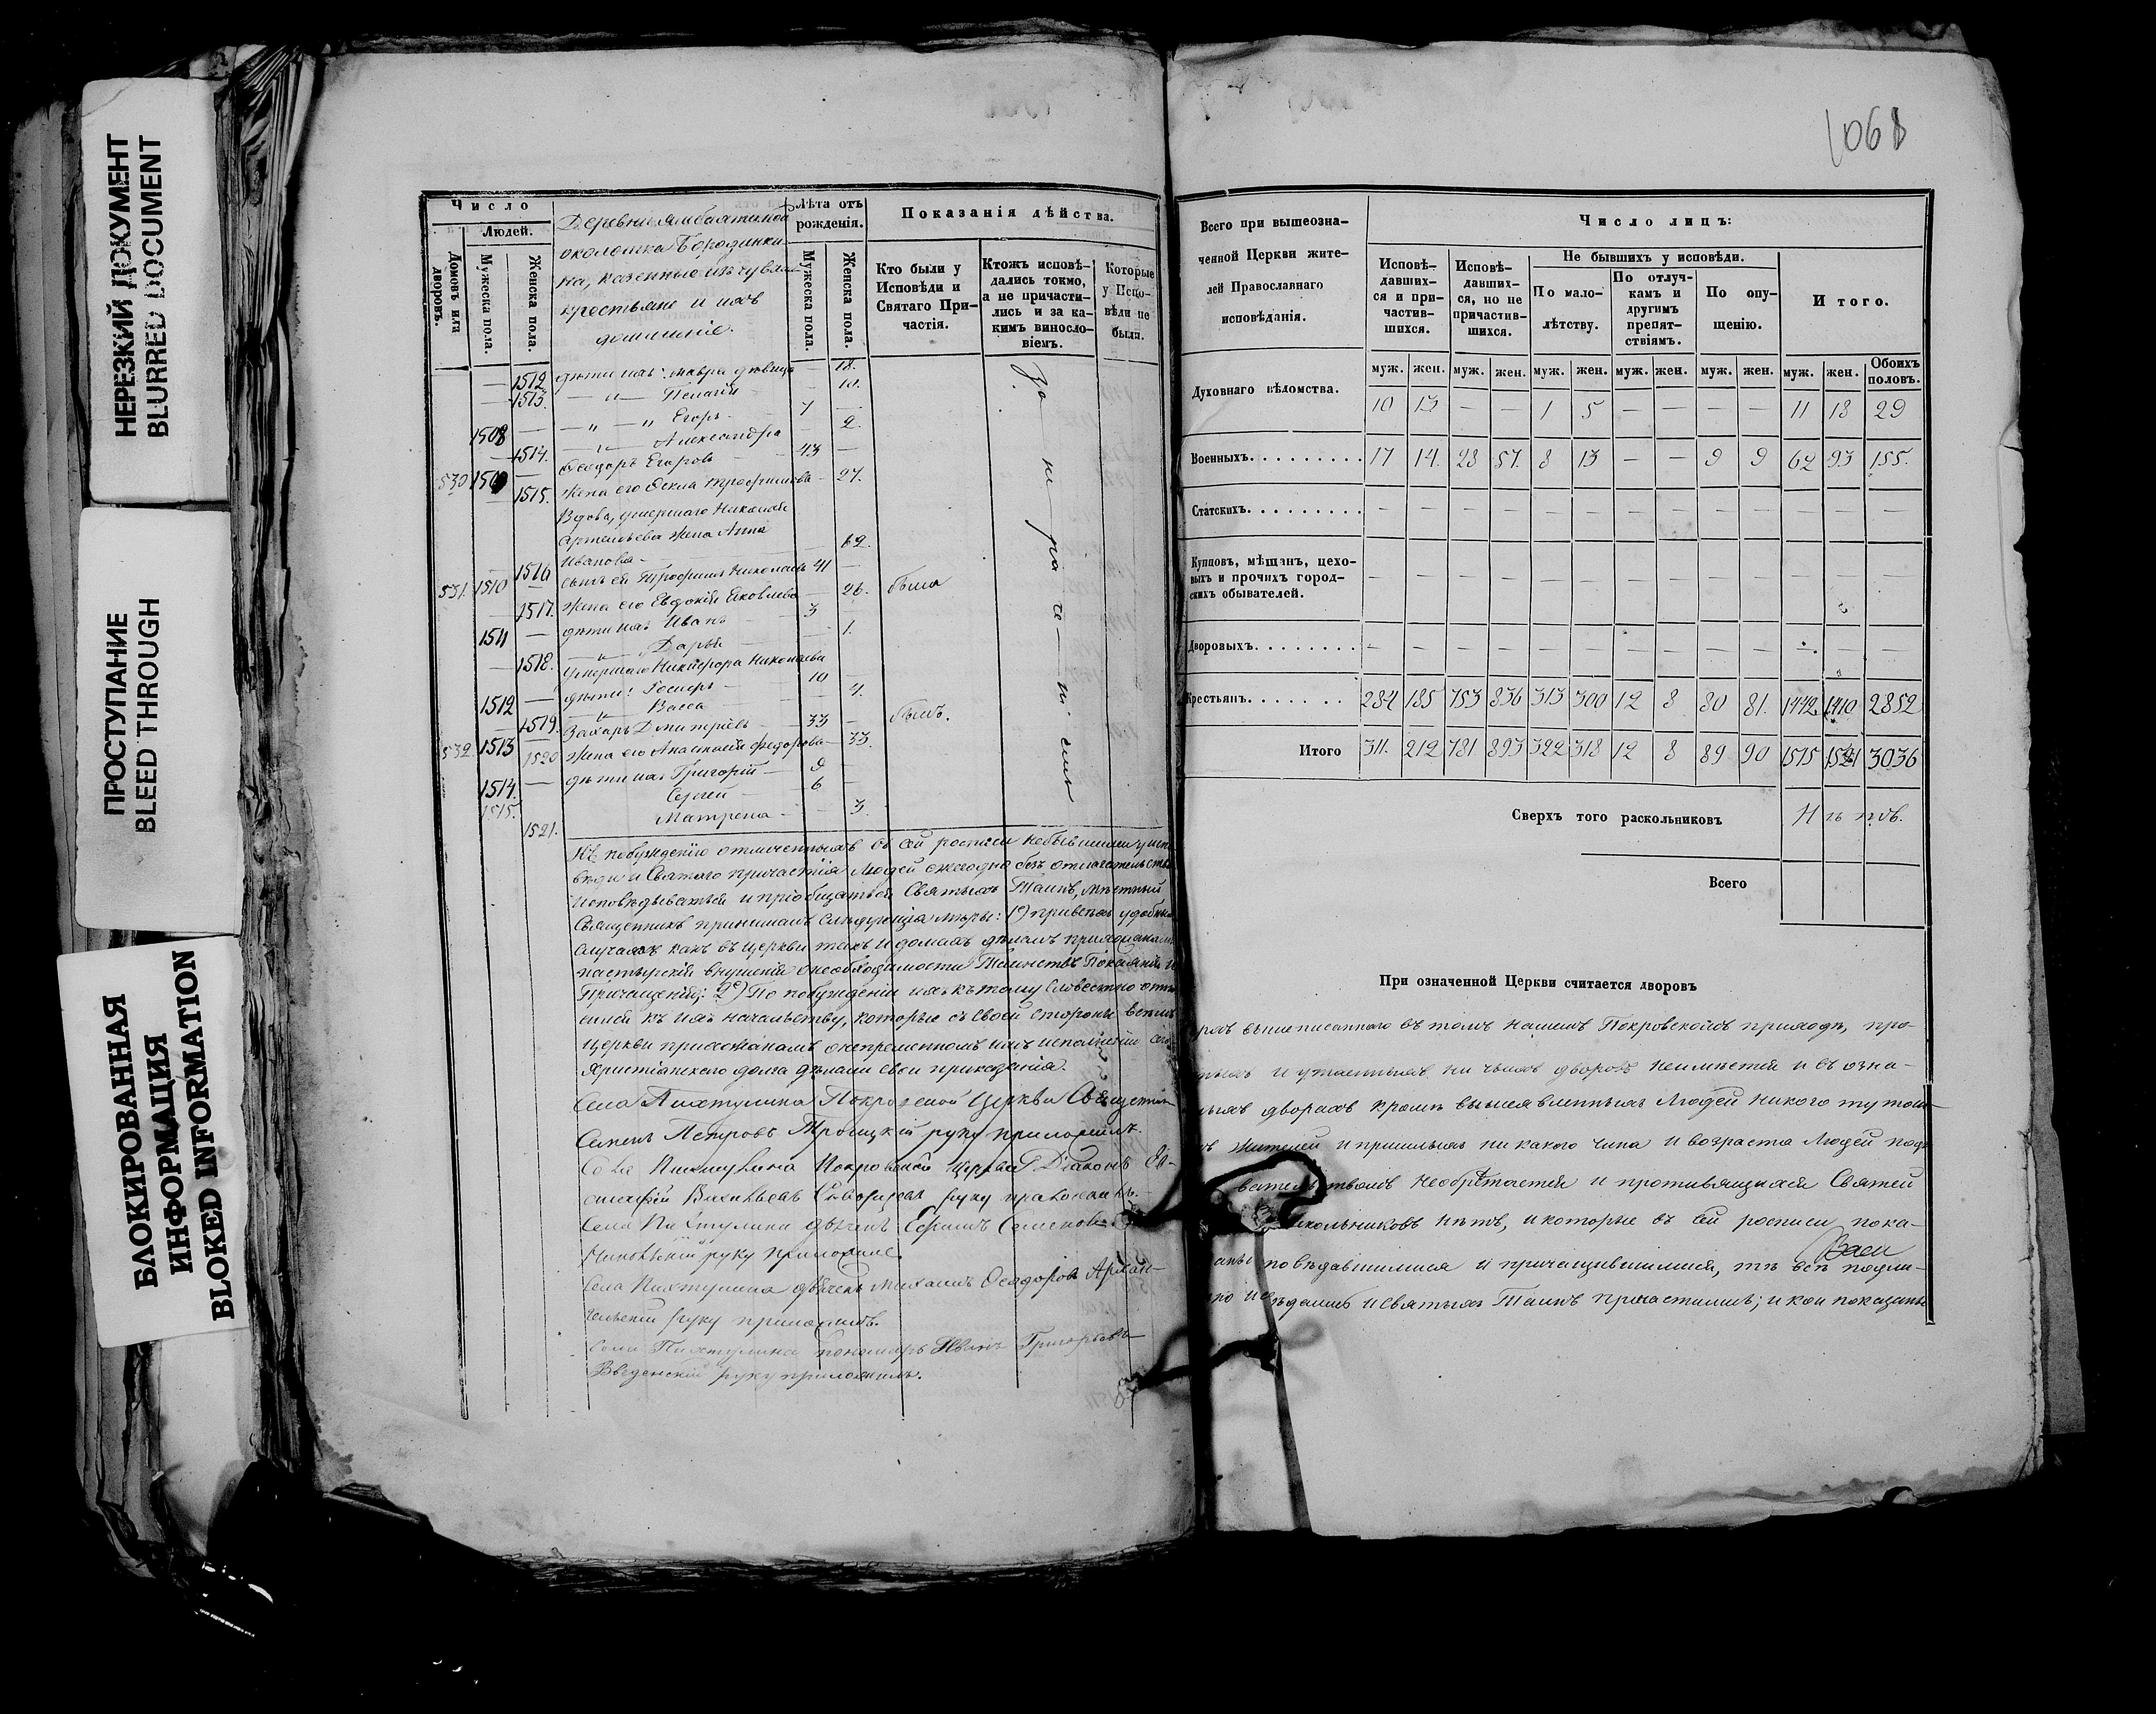 НЕРЕЗКИЙ ДОКУМЕНТ
BLURRED DOCUMENT
ПРОСТУПАНИЕ
BLEED THROUGH
БЛОКИРОВАННАЯ
ИНФОРМАЦИЯ
BLOKED INFORMATION
Число
Людей.
Домовъ или дворовъ.
Мужеска пола.
Женска пола.
Деревни
околотка
казенные изъ чуваш
крестьяне и ихъ
домашніе.
Лѣта отъ рожденія.
Мужеска пола.
Женска пола.
Показанія дѣйства.
Кто были у Исповѣди и Святаго Причастія.
Ктожъ исповѣдались токмо, а не причастились и за какимъ винословіемъ.
Которые у Исповѣди не были.
1512 дѣти ихъ: Мавра дѣвица — 18.
1513. — „ — Пелагія — 10.
1508 — „ — „ Егоръ — 7 —
1514. — „ — Александра — 2.
530 Ѳеодоръ Егоровъ — 43 —
1515. Жена его Ѳекла Трофимова — 27.
Вдова, умершаго Николая
Артемьева жена Анна
1516 Иванова — 62.
531. 1510 Сынъ ея Трофимъ Николаевъ 41 —
1517. Жена его Евдокія Яковлева — 26. была
1511 — дѣти ихъ Иванъ — 3
1518. — „ — Дарья — 1.
Умершаго Никифора Николаева
1512 — дѣти: — 10
1519. — „ — Васса — 4.
532. 1513 Захаръ Дмитріевъ — 33 — былъ.
1520 Жена его Анастасія Федорова — 33.
1514. — дѣти ихъ Григорій — 9
1515. Сергей — 6
1521. Матрена — 3.
За нераченіемъ
Къ побужденію отмеченныхъ въ сей росписи небывшими у испо
вѣди и Святаго причастія людей ежегодно безъ отлагательства
исповѣдываться и пріобщаться Святыхъ Таинъ, мѣстный
Священникъ принималъ слѣдующія мѣры: 1е) при всѣхъ удобныхъ
случаяхъ какъ въ церкви такъ и домахъ дѣлалъ прихожанамъ
пастырскія внушенія о необходимости Таинствъ Покаянія и
Причащенія; 2е) По побужденіи ихъ къ тому словесно
къ ихъ начальству, которые съ своей стороны всѣмъ
церкви прихожанамъ о непременномъ ими исполненіи сего
христіанскаго долга дѣлали свои приказанія.
Села Пихтулина Покровской Церкви Священникъ
Семенъ Петровъ Троицкій руку приложилъ.
Села Пихтулина Покровской церкви Діаконъ
Васильевъ руку приложилъ.
Села Пихтулина дьячекъ Семеновъ
руку приложилъ.
Села Пихтулина дьячекъ Михаилъ Ѳеодоровъ Архан-
гельскій руку приложилъ.
Села Пихтулина пономарь Иванъ Григорьевъ
Введенскій руку приложилъ.
1068
Всего при вышеозна-
ченной Церкви жите-
лей Православнаго
исповѣданія.
Число лицъ:
Исповѣ-
давших-
ся и при-
частив-
шихся.
Исповѣ-
давших-
ся, но не
причастив-
шихся.
Не бывшихъ у исповѣди.
По мало-
лѣтству.
По отлуч-
камъ и
другимъ
препят-
ствіямъ.
По опу-
щенію.
Итого.
муж. жен. муж. жен. муж. жен. муж. жен. муж. жен. муж. жен. Обоихъ половъ.
Духовнаго вѣдомства. 10 13 — — 1 5 — — — — 11 18 29
Военныхъ. 17 14. 28 57. 8 13 — — 9 9 62 93 155.
Статскихъ. — — — — — — — — — — — — —
Купцовъ, мѣщанъ, цехо-
выхъ и прочихъ город-
скихъ обывателей. — — — — — — — — — — — — —
Дворовыхъ. — — — — — — — — — — — — —
Крестьянъ. 284 185 753 836 313 300 12 8 80 81. 1442 1410 2852
Итого 311. 212 781 893 322 318 12 8 89 90 1515 1521 3036
Сверхъ того раскольниковъ Нѣтъ.
Всего
При означенной Церкви считается дворовъ
вышеписаннаго въ томъ нашемъ Покровскомъ приходѣ, про-
и утаенныхъ ни чьихъ дворовъ неимѣется и въ озна-
дворахъ кромѣ вышеявленныхъ людей никого тутош-
жителей и пришлыхъ ни какого чина и возраста людей подъ
необрѣтается и противящихся Святей
раскольниковъ нѣтъ, и которые въ сей росписи пока-
заны исповѣдавшимися и причащившимися, тѣ всѣ подли-
нно исповѣдались и святыхъ Таинъ причастились; и кои показаны